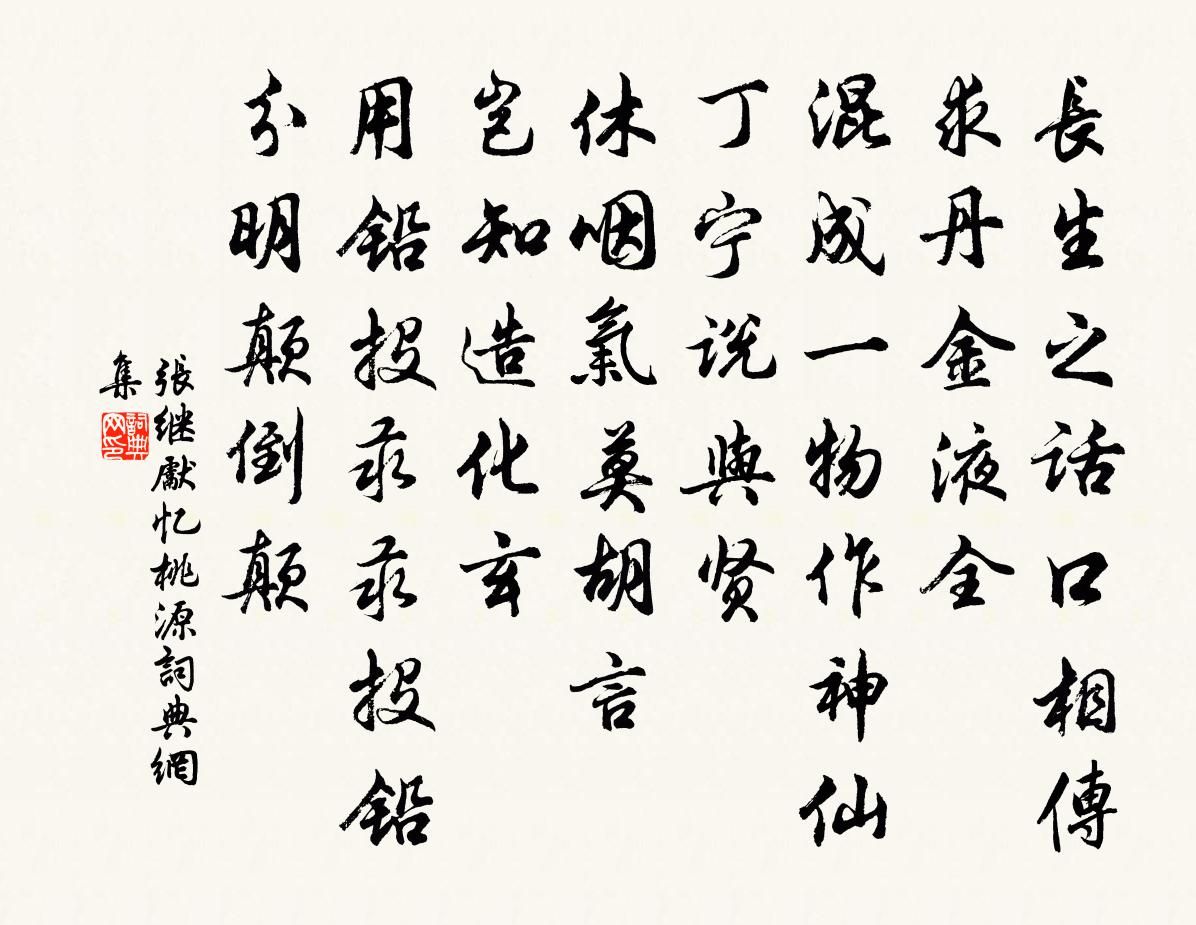 長生之话口相傳
求丹金液全
混成一物作神仙
丁宁说與贤
休咽氣莫胡言
岂知造化玄
用铅投汞汞投铅
分明颠倒颠
張继獻忆桃源詞典網
集
詞典
网印